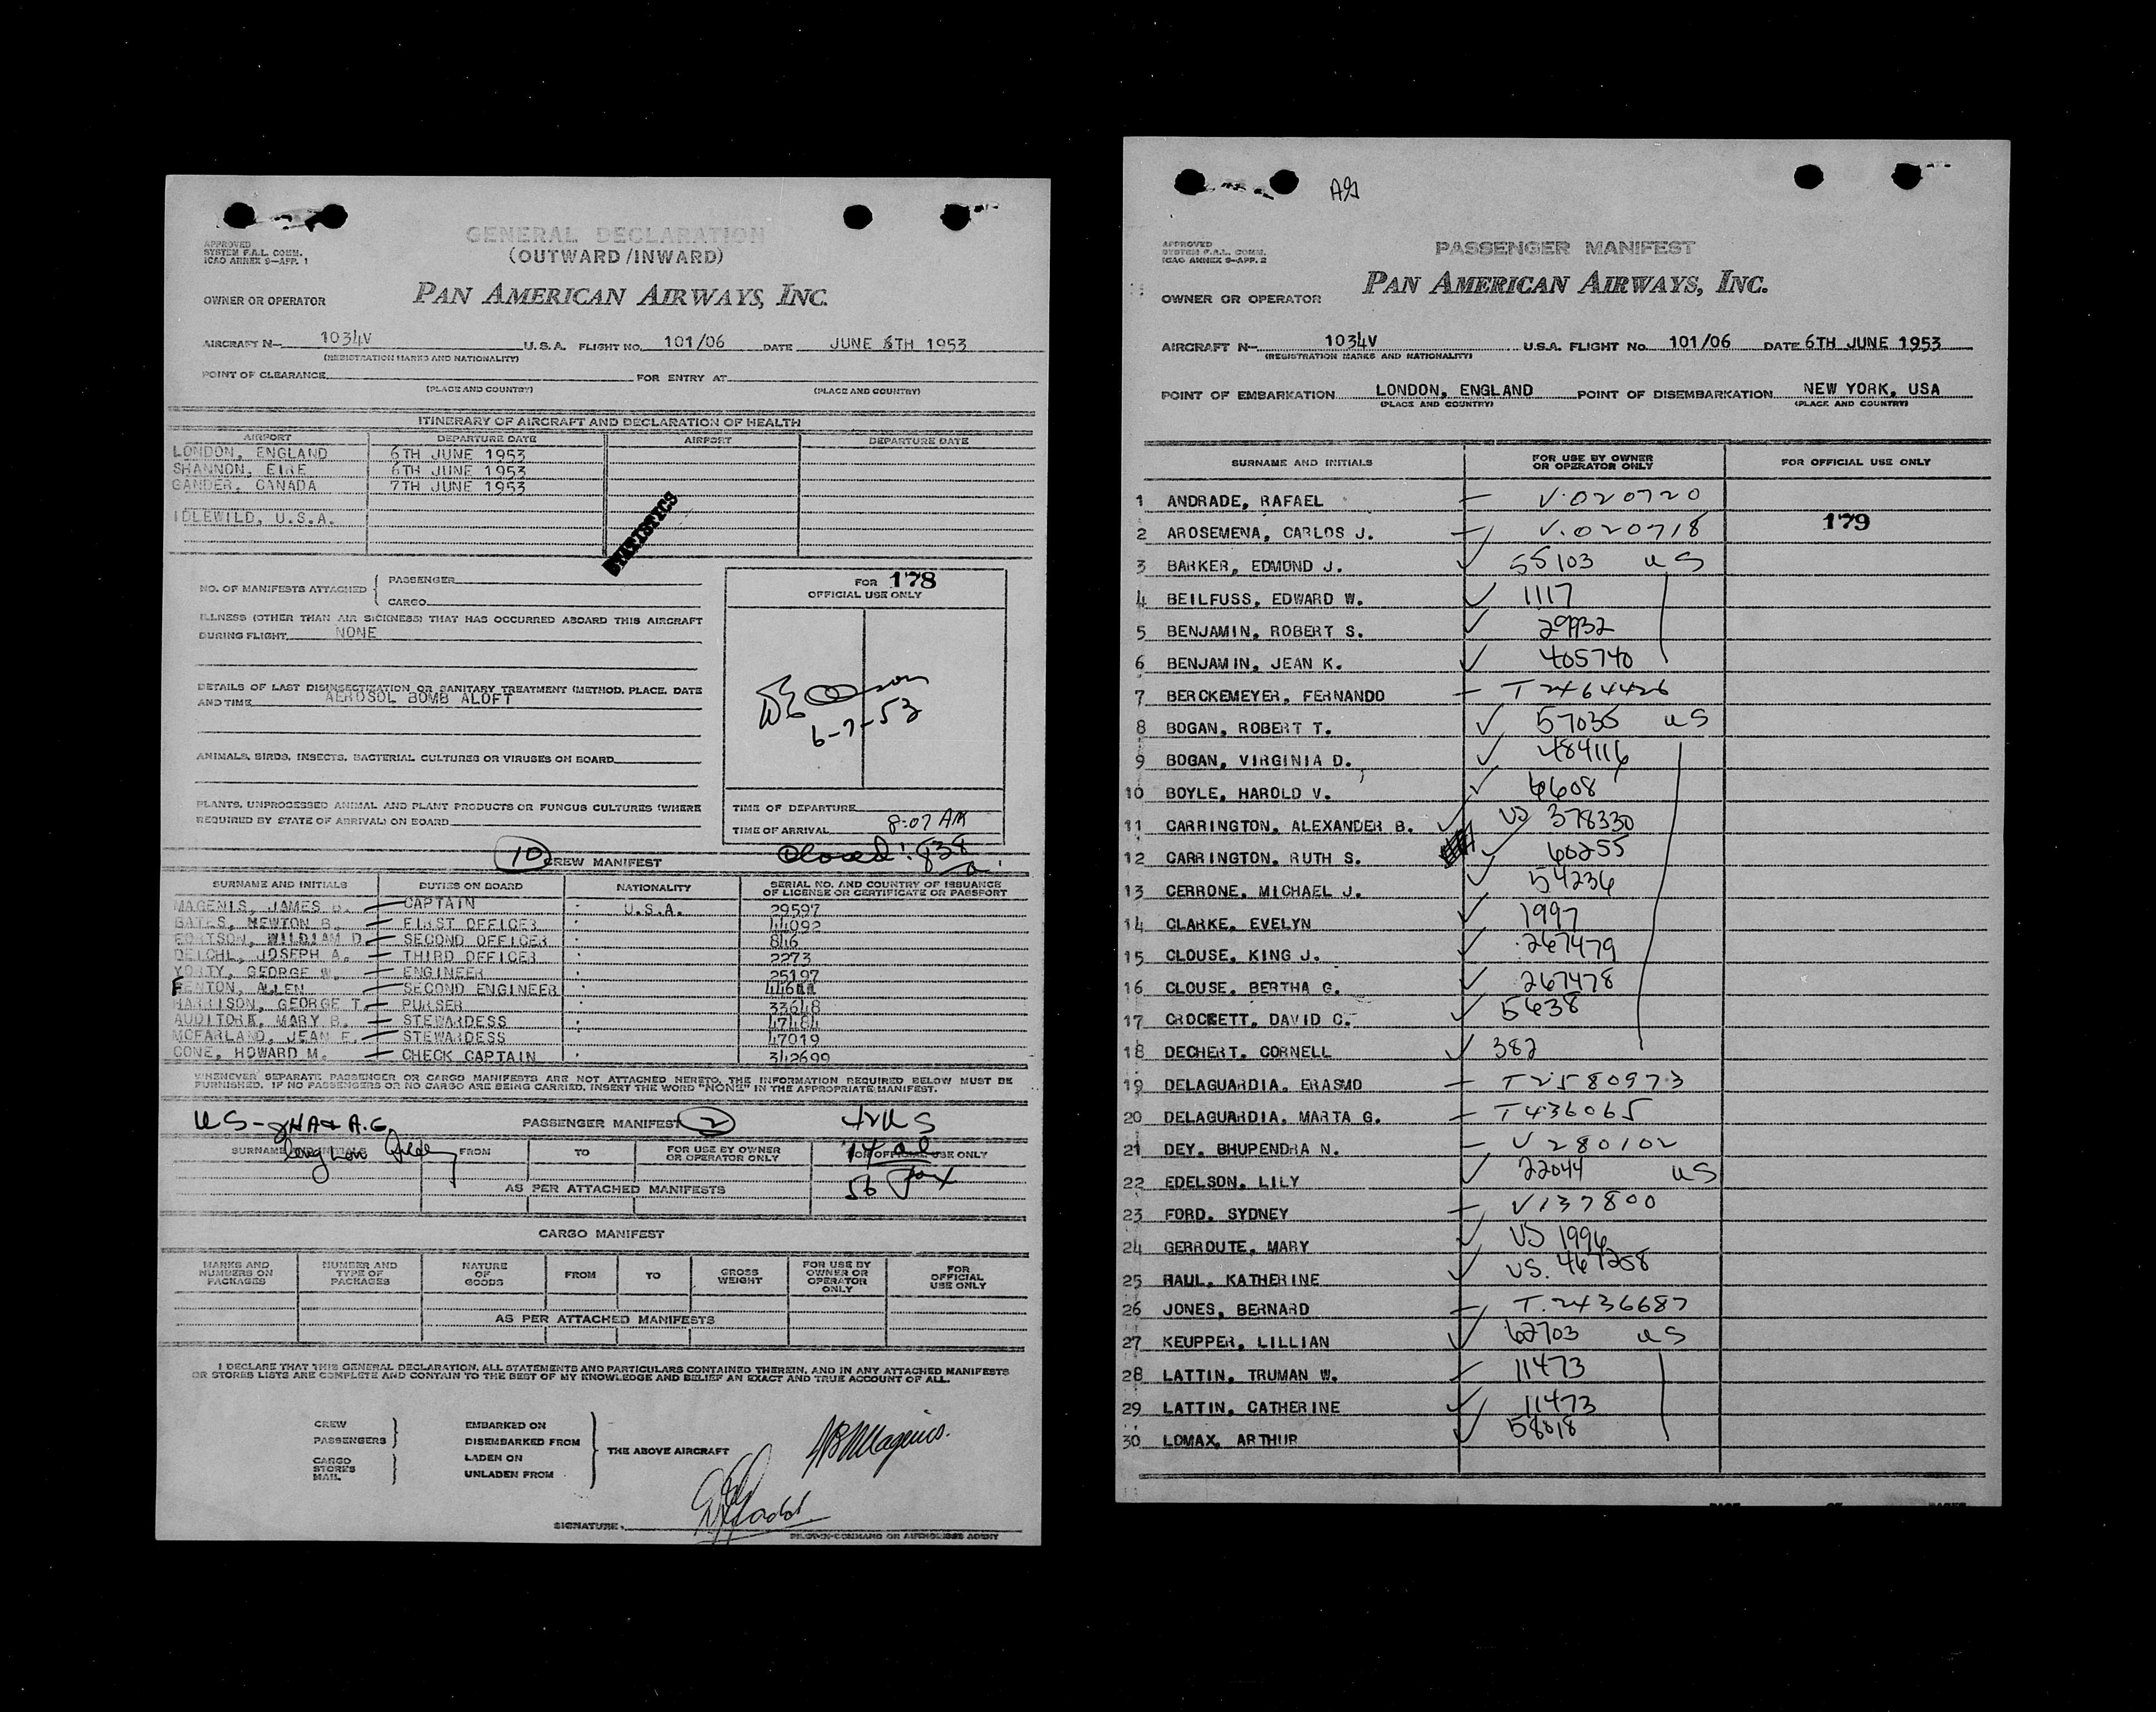 APPROVED
SYSTEM F.A.L. COMM.
ICAO ANNEX 9-APP. 1
GENERAL DECLARATION
(OUTWARD/INWARD)
OWNER OR OPERATOR PAN AMERICAN AIRWAYS, INC.
AIRCRAFT N- 1034V U.S.A. FLIGHT NO. 101/06 DATE JUNE 6TH 1953
(REGISTRATION MARKS AND NATIONALITY)
POINT OF CLEARANCE FOR ENTRY AT
(PLACE AND COUNTRY) (PLACE AND COUNTRY)
ITINERARY OF AIRCRAFT AND DECLARATION OF HEALTH
AIRPORT DEPARTURE DATE AIRPORT DEPARTURE DATE
LONDON, ENGLAND 6TH JUNE 1953
SHANNON, EIRE 6TH JUNE 1953
GANDER, CANADA 7TH JUNE 1953
IDLEWILD, U.S.A.
STATISTICS
NO. OF MANIFESTS ATTACHED PASSENGER
CARGO
FOR 178
OFFICIAL USE ONLY
ILLNESS (OTHER THAN AIR SICKNESS) THAT HAS OCCURRED ABOARD THIS AIRCRAFT
DURING FLIGHT NONE
DETAILS OF LAST DISINSECTIZATION OR SANITARY TREATMENT (METHOD, PLACE, DATE
AND TIME AEROSOL BOMB ALOFT
6-7-53
ANIMALS, BIRDS, INSECTS, BACTERIAL CULTURES OR VIRUSES ON BOARD
PLANTS, UNPROCESSED ANIMAL AND PLANT PRODUCTS OR FUNGUS CULTURES (WHERE
REQUIRED BY STATE OF ARRIVAL) ON BOARD
TIME OF DEPARTURE
TIME OF ARRIVAL 8:07 AM
Closed: 838 a
10 CREW MANIFEST
SURNAME AND INITIALS DUTIES ON BOARD NATIONALITY SERIAL NO. AND COUNTRY OF ISSUANCE
OF LICENSE OR CERTIFICATE OR PASSPORT
MAGENIS, JAMES B. CAPTAIN U.S.A. 29597
BATES, NEWTON B. FIRST OFFICER 44092
WILDIAM D. SECOND OFFICER 846
DEICHL, JOSEPH A. THIRD OFFICER 2273
YORTY, GEORGE W. ENGINEER 25197
FENTON, ALLEN SECOND ENGINEER
HARRISON, GEORGE T. PURSER 33648
AUDITORE, MARY B. STEWARDESS 47484
MCFARLAND, JEAN F. STEWARDESS 47019
CONE, HOWARD M. CHECK CAPTAIN 342699
WHENEVER SEPARATE PASSENGER OR CARGO MANIFESTS ARE NOT ATTACHED HERETO, THE INFORMATION REQUIRED BELOW MUST BE
FURNISHED. IF NO PASSENGERS OR NO CARGO ARE BEING CARRIED, INSERT THE WORD "NONE" IN THE APPROPRIATE MANIFEST.
PASSENGER MANIFEST 2 42 US
SURNAME AND INITIALS FROM TO FOR USE BY OWNER
OR OPERATOR ONLY FOR OFFICIAL USE ONLY
14 al
AS PER ATTACHED MANIFESTS 56 Pax
CARGO MANIFEST
MARKS AND
NUMBERS ON
PACKAGES NUMBER AND
TYPE OF
PACKAGES NATURE
OF
GOODS FROM TO GROSS
WEIGHT FOR USE BY
OWNER OR
OPERATOR
ONLY FOR
OFFICIAL
USE ONLY
AS PER ATTACHED MANIFESTS
I DECLARE THAT THIS GENERAL DECLARATION, ALL STATEMENTS AND PARTICULARS CONTAINED THEREIN, AND IN ANY ATTACHED MANIFESTS
OR STORES LISTS ARE COMPLETE AND CONTAIN TO THE BEST OF MY KNOWLEDGE AND BELIEF AN EXACT AND TRUE ACCOUNT OF ALL.
CREW EMBARKED ON
PASSENGERS DISEMBARKED FROM
THE ABOVE AIRCRAFT
CARGO LADEN ON
STORES
MAIL UNLADEN FROM
JB Magenis.
SIGNATURE.
PILOT-IN-COMMAND OR AUTHORISED AGENT
APPROVED
SYSTEM F.A.L. COMM.
ICAO ANNEX 9-APP. 2
PASSENGER MANIFEST
OWNER OR OPERATOR PAN AMERICAN AIRWAYS, INC.
AIRCRAFT N- 1034V U.S.A. FLIGHT No. 101/06 DATE 6TH JUNE 1953
(REGISTRATION MARKS AND NATIONALITY)
POINT OF EMBARKATION LONDON, ENGLAND POINT OF DISEMBARKATION NEW YORK, USA
(PLACE AND COUNTRY) (PLACE AND COUNTRY)
SURNAME AND INITIALS FOR USE BY OWNER
OR OPERATOR ONLY FOR OFFICIAL USE ONLY
1 ANDRADE, RAFAEL V.020720
2 AROSEMENA, CARLOS J. V.020718 179
3 BARKER, EDMOND J. 55103 US
4 BEILFUSS, EDWARD W. 1117
5 BENJAMIN, ROBERT S. 29932
6 BENJAMIN, JEAN K. 405740
7 BERCKEMEYER, FERNANDO T2464426
8 BOGAN, ROBERT T. 57035 US
9 BOGAN, VIRGINIA D. 484116
10 BOYLE, HAROLD V. 6608
11 CARRINGTON, ALEXANDER B. US 378330
12 CARRINGTON, RUTH S. 60255
13 CERRONE, MICHAEL J. 54236
14 CLARKE, EVELYN 1997
15 CLOUSE, KING J. 267479
16 CLOUSE, BERTHA G. 267478
17 CROCKETT, DAVID C. 5638
18 DECHERT, CORNELL 382
19 DELAGUARDIA, ERASMO T2580973
20 DELAGUARDIA, MARTA G. T436065
21 DEY, BHUPENDRA N. V 280102
22 EDELSON, LILY 22044 US
23 FORD, SYDNEY V137800
24 GERROUTE, MARY US 1996
25 HAUL, KATHERINE US. 467258
26 JONES, BERNARD T.2436687
27 KEUPPER, LILLIAN 62703 US
28 LATTIN, TRUMAN W. 11473
29 LATTIN, CATHERINE 11473
30 LOMAX, ARTHUR 58018